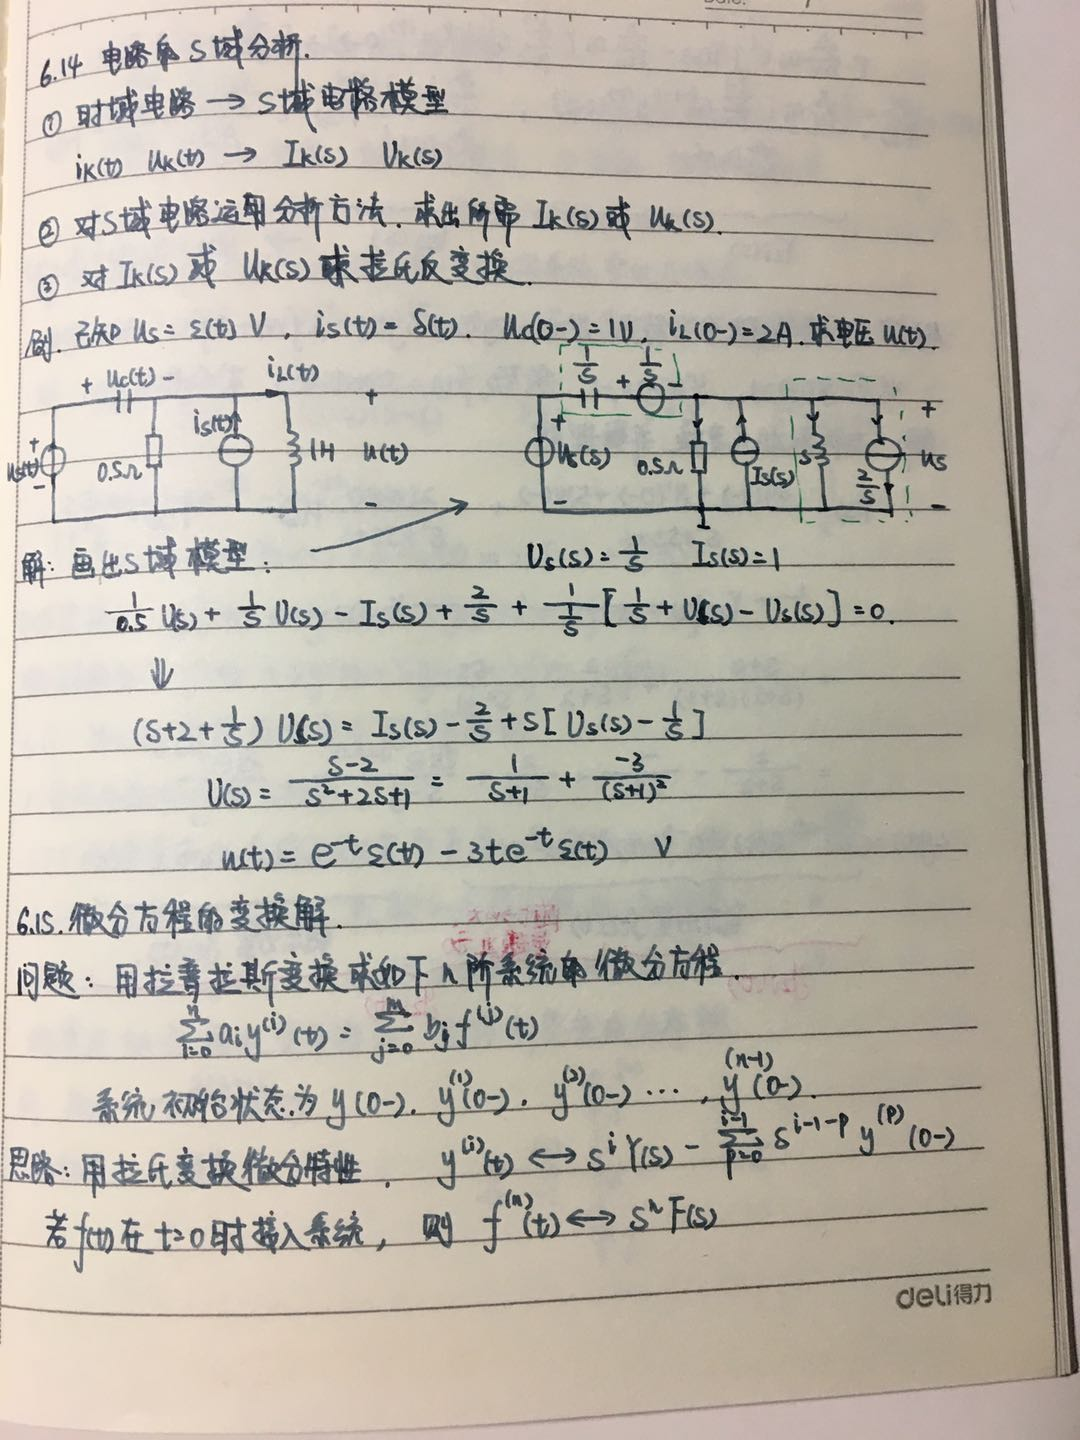 6.14 电路的S域分析.
① 时域电路 → S域电路模型
iK(t) uK(t) → IK(s) UK(s)
② 对S域电路运用分析方法.求出所需 IK(s) 或 UK(s).
③ 对 IK(s) 或 UK(s) 求拉氏反变换.
例. 已知 Us = ε(t) V, is(t) = δ(t). Uc(0-) = 1V, iL(0-) = 2A. 求电压 u(t).
+ uc(t) - iL(t) + us(t) - 0.5Ω is(t) 1H + u(t) -
1/s + 1/s - + Us(s) - 0.5Ω Is(s) s 2/s + us -
解: 画出S域模型:
Us(s) = 1/s Is(s) = 1
1/0.5 U(s) + 1/s U(s) - Is(s) + 2/s + 1/(1/s) [1/s + U(s) - Us(s)] = 0.
⇓
(s+2+1/s) U(s) = Is(s) - 2/s + s[Us(s) - 1/s]
U(s) = (s-2)/(s²+2s+1) = 1/(s+1) + -3/(s+1)²
u(t) = e^-t ε(t) - 3te^-t ε(t) V
6.15. 微分方程的变换解.
问题: 用拉普拉斯变换求如下n阶系统的微分方程.
∑(i=0→n) ai y^(i)(t) = ∑(j=0→m) bj f^(j)(t)
系统初始状态为 y(0-). y^(1)(0-). y^(2)(0-) ···, y^(n-1)(0-).
思路: 用拉氏变换微分特性. y^(i)(t) ↔ s^i Y(s) - ∑(p=0→i-1) s^(i-1-p) y^(p)(0-)
若f(t)在t=0时接入系统, 则 f^(n)(t) ↔ s^n F(s)
deli得力